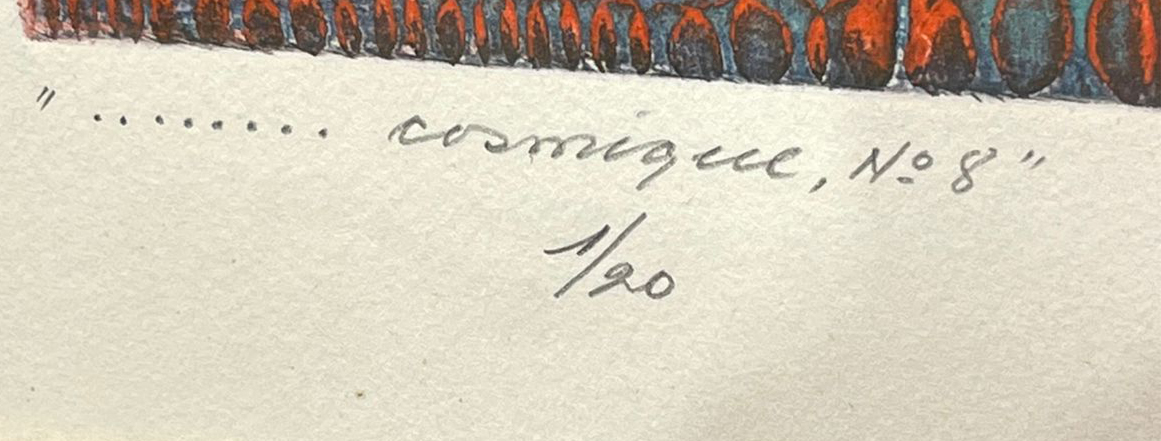 " ......... cosmique, Nº 8"
1/20